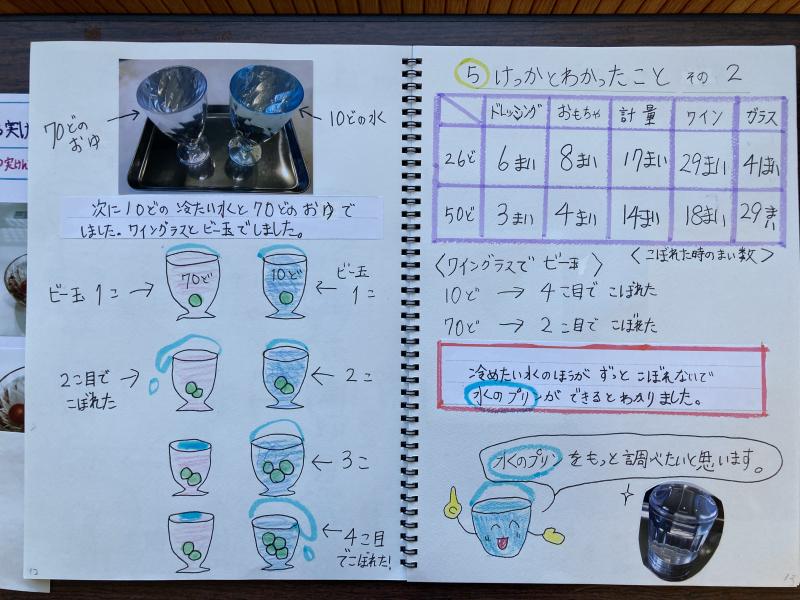 70どの
おゆ
10どの水
次に10どの冷たい水と70どのおゆで
しました。ワイングラスとビー玉でしました。
70ど
10ど
ビー玉1こ
ビー玉
1こ
2こ目で
こぼれた
2こ
3こ
4こ目
でこぼれた!
12
⑤ けっかとわかったこと その2
ドレッシング おもちゃ 計量 ワイン ガラス
26ど 6まい 8まい 17まい 29まい 41まい
50ど 3まい 4まい 14まい 18まい 29まい
〈こぼれた時のまい数〉
〈ワイングラスで ビー玉〉
10ど → 4こ目で こぼれた
70ど → 2こ目で こぼれた
冷めたい水のほうが ずっと こぼれないで
水のプリンができるとわかりました。
水のプリンをもっと調べたいと思います。
13